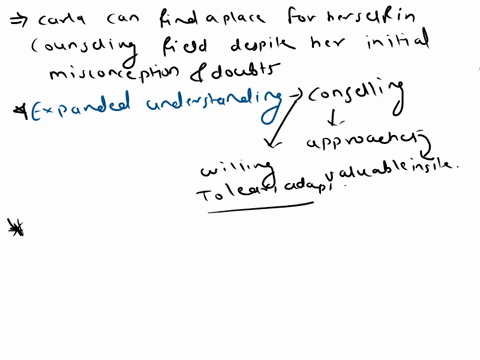 ⇒ carla can find a place for herself in
Counseling field despite her initial
misconception & doubts
* Expanded understanding → Conselling
approaches
willing
valuable insite.
To learn, adapt
*